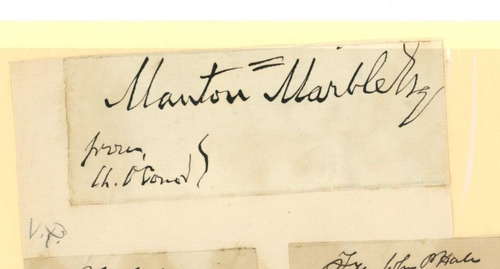 Manton Marble Esq
from
Ch. O'Conor
John P. Hale